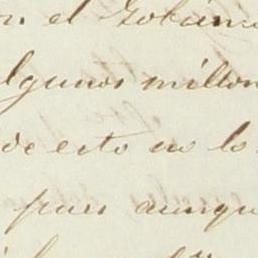 on el Gobier
algunos millon
de esto no lo
pues aunqu